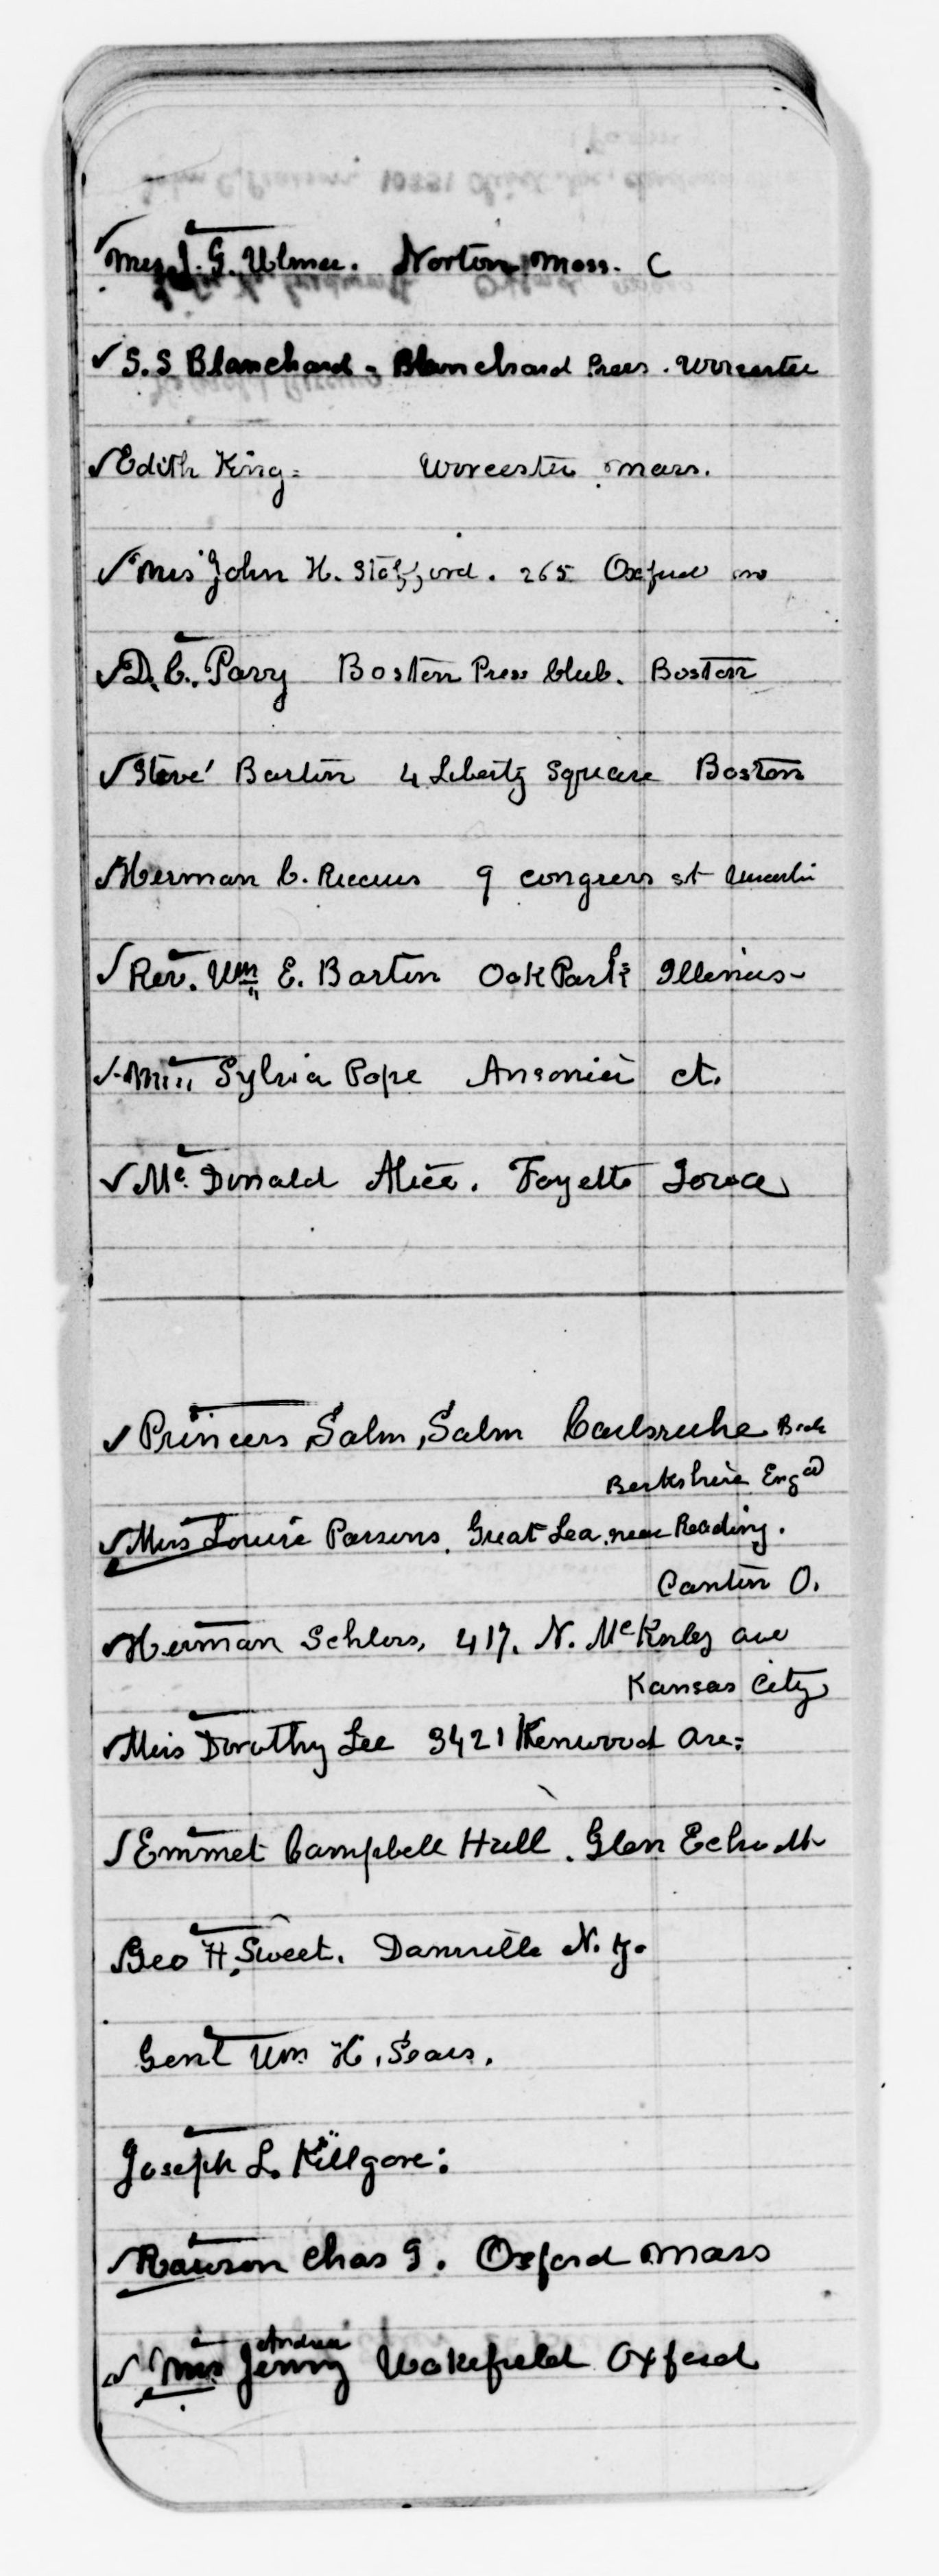 ✓ Mrs J. G. Ulmer. Norton Mass. C
✓ S. S Blanchard - Blanchard Press. Worcester
✓ Edith King = Worcester Mass.
✓ Mrs John H. Stafford. 265 Oxford
✓ D. C. Parry Boston Press Club. Boston
✓ Steve' Barton 4 Liberty Square Boston
✓ Herman C. 9 Congress st
✓ Rev. Wm E. Barton Oak Park Illinois
✓ Miss Sylvia Pope Ansonia ct.
✓ Mc Donald Alice. Fayette Iowa
✓ Princess Salm, Salm Carlsruhe
Berkshire Engd
✓ Miss Louise Parsons. Great Lea. near Reading.
Canton O.
✓ Herman Schlers, 417. N. McKinley ave
Kansas City
✓ Miss Dorothy Lee 3421 Kenwood Ave.
✓ Emmet Campbell Hall. Glen Echo Md
✓ Geo H. Sweet. Dansville N. Y.
Genl Wm H. Sears.
Joseph L. Killgore:
✓ Rawson Chas G. Oxford Mass
Andrew
✓ Mrs Jenny Wakefield Oxford